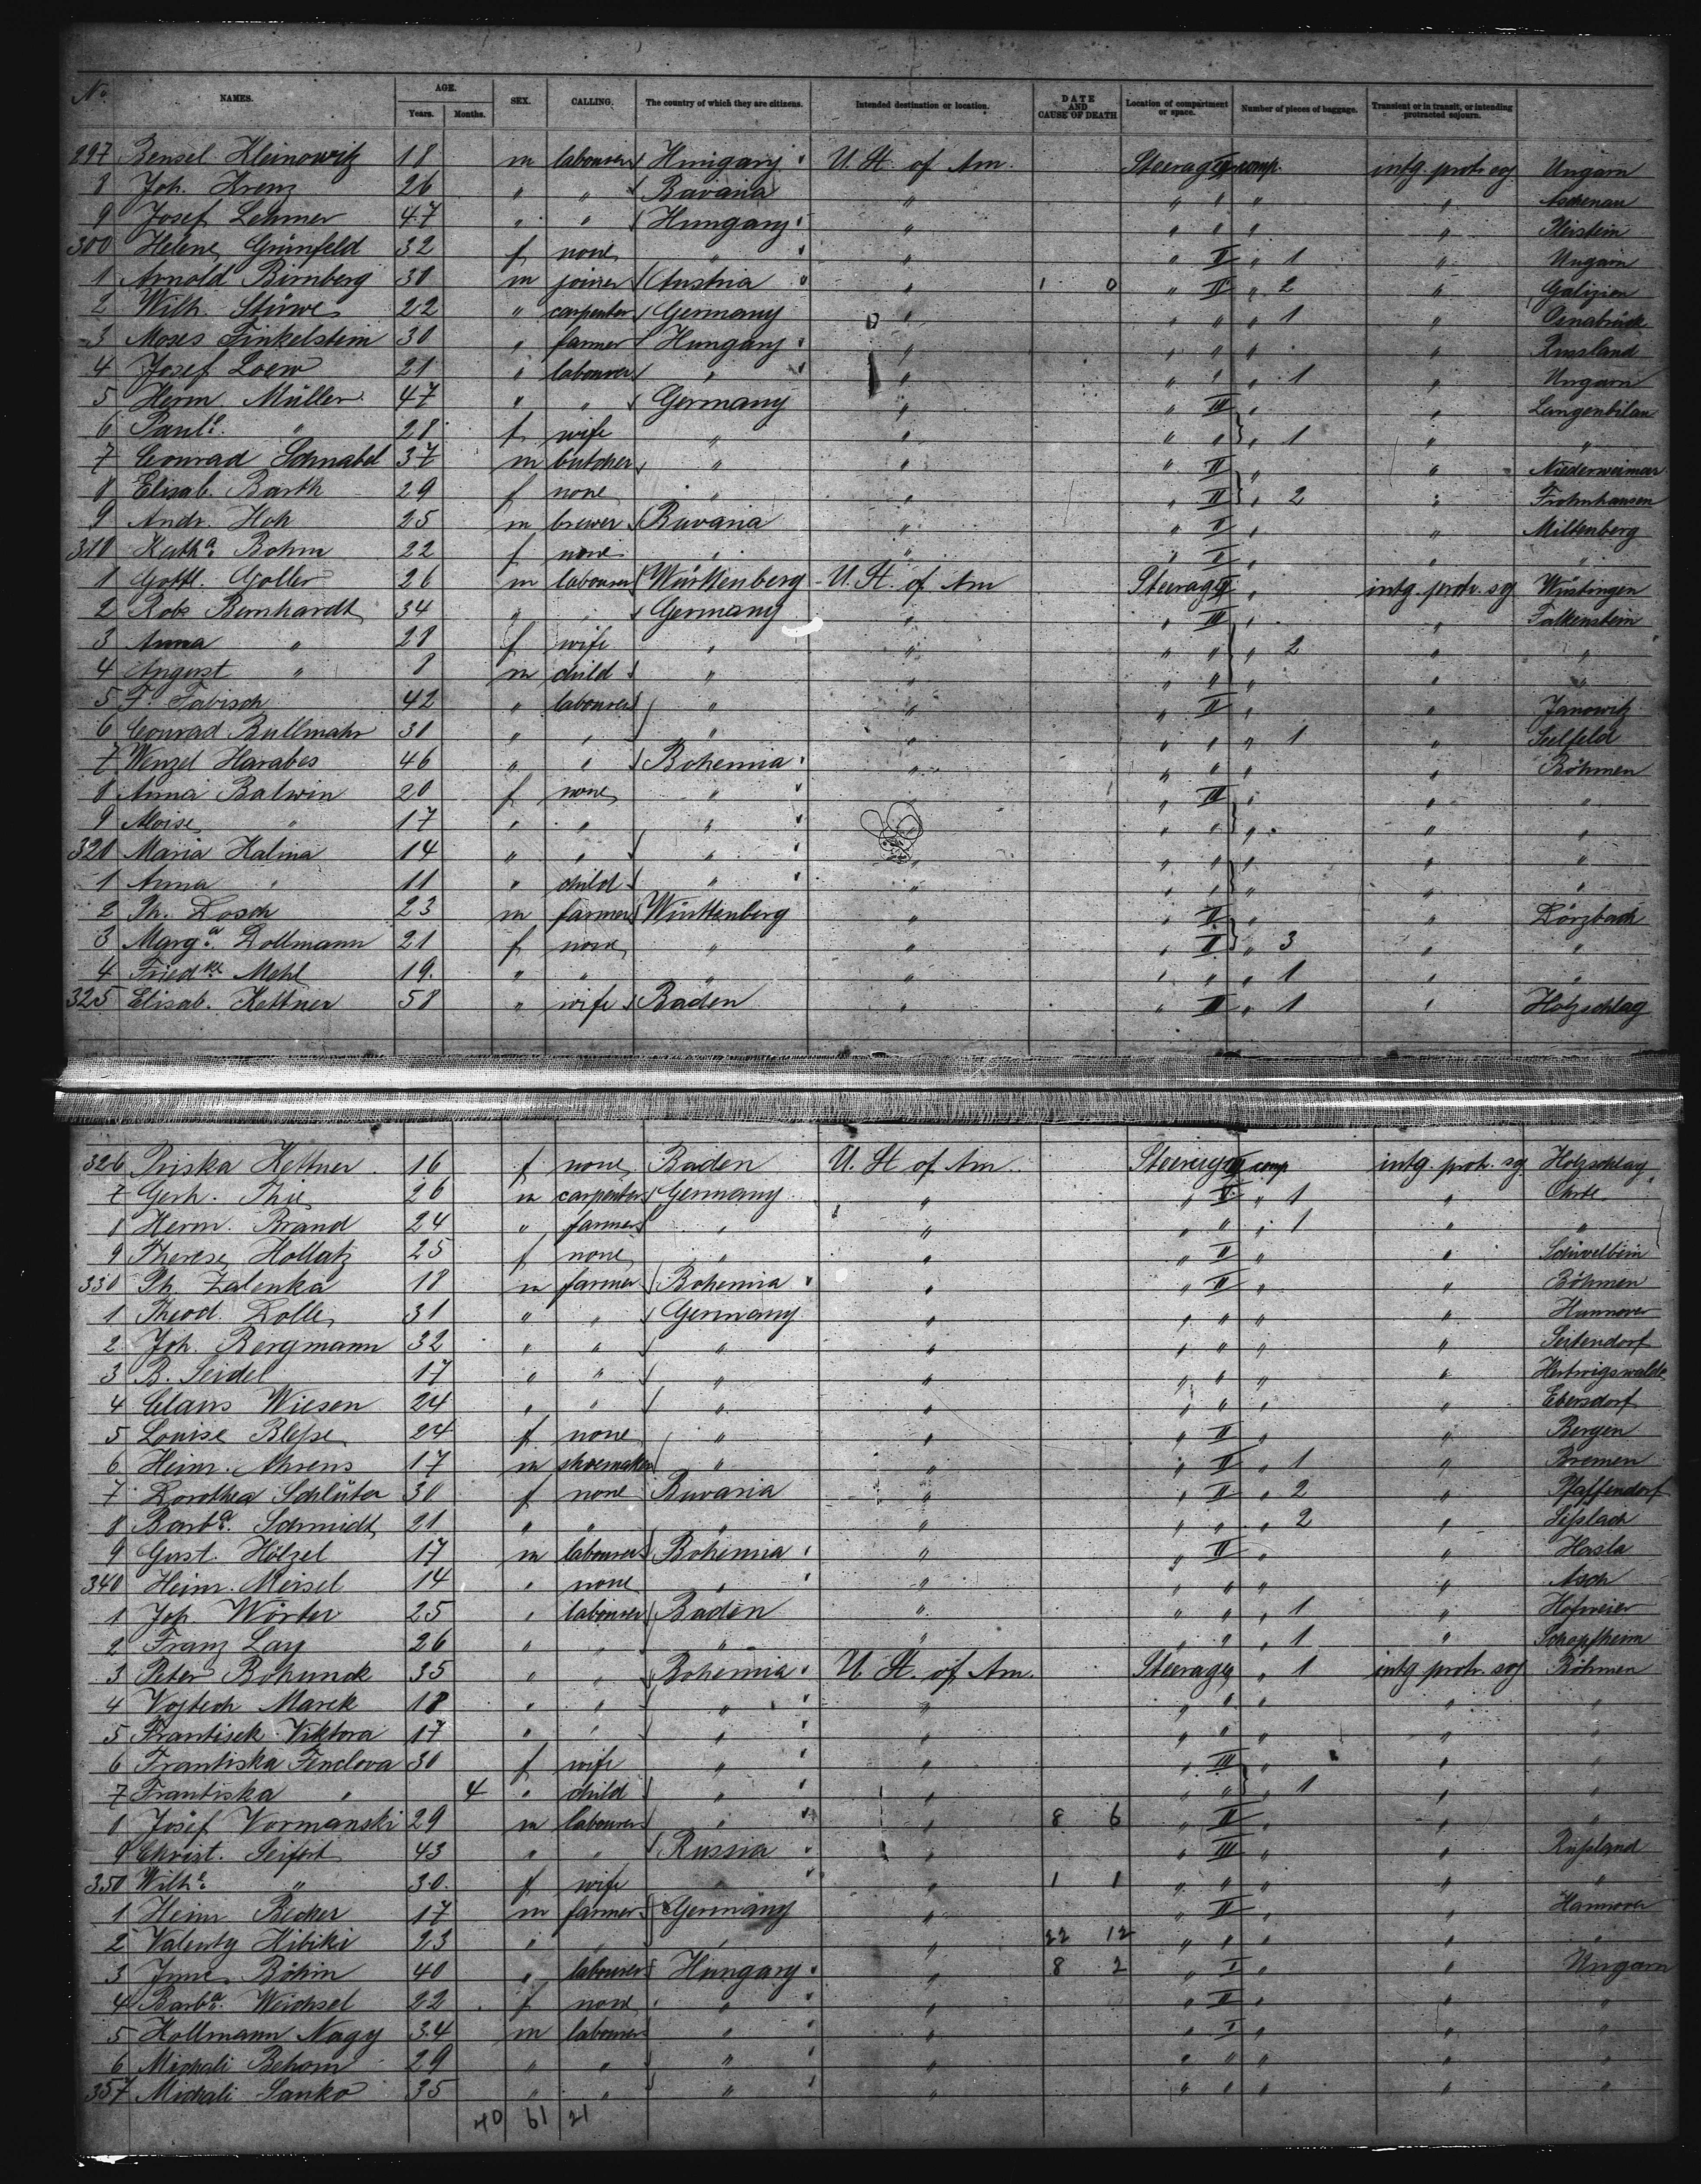 No. NAMES. AGE. Years. Months. SEX. CALLING. The country of which they are citizens. Intended destination or location. DATE AND CAUSE OF DEATH Location of compartment or space. Number of pieces of baggage. Transient or in transit, or intending protracted sojourn.
297 Bensel Kleinowitz 18 m labourer Hungary U. St. of Am. Steerage comp. intg. protr. sog Ungarn
8 Joh. Krenz 26 " " Bavaria " " " " " Aschenau
9 Josef Lehmer 47 " " Hungary " " " " "
300 Helene Grünfeld 32 f none " " " II " 1 " Ungarn
1 Arnold Birnberg 30 m joiner Austria " 1 0 " II " 2 " Galizien
2 Wilh. Stüwe 22 " carpenter Germany " " " " 1 " Osnabrück
3 Moses Finkelstein 30 " farmer Hungary " " " " " Russland
4 Josef Loew 21 " labourer " " " " " 1 " Ungarn
5 Herm Müller 47 " " Germany " " III " " Langenbilau
6 Paule. " 28 f wife " " " " " 1 " "
7 Conrad Schnabel 37 m butcher " " " II " " Niederweimar
8 Elisab. Barth 29 f none " " " II " 2 " Frohnhausen
9 Andr. Hoh 25 m brewer Bavaria " " II " " Miltenberg
310 Katha. Bohm 22 f none " " " II " " "
1 Gottl. Goller 26 m labourer Württenberg U. St. of Am Steerage " intg. protr. sg
2 Rob. Bernhardt 34 " " Germany " " III " " Falkenstein
3 Anna " 28 f wife " " " " " 2 " "
4 August " 8 m child " " " " " " "
5 F. Fabisch 42 " labourer " " " II " " Janowitz
6 Conrad Bullmahr 30 " " " " " " " 1 " Seelfeld
7 Wenzel Harabes 46 " " Bohemia " " " " " Böhmen
8 Anna Balwin 20 f none " " " III " " "
9 Aloise " 17 " " " " " " " " "
320 Maria Kalina 14 " " " " " " " "
1 Anna " 11 " child " " " " " " "
2 Ph. Dosch 23 m farmer Württenberg " " II " " Dörzbach
3 Marga. Dollmann 21 f none " " " II " 3 " "
4 Friedke Mehl 19. " " " " " " " 1 " "
325 Elisab. Kettner 58 " wife Baden " " III " 1 " Holzschlag
326 Priska Kettner 16 f none Baden U. St of Am Steerage comp intg. protr. sg Holzschlag
7 Gerh. Thie 26 m carpenter Germany " " II " 1 "
8 Herm. Brand 24 " farmer " " " " " 1 " "
9 Therese Hollatz 25 f none " " " II " " Schivelbein
330 Ph. Zalenka 18 m farmer Bohemia " " II " " Böhmen
1 Theod. Dolle 31 " " Germany " " " " " Hannover
2 Joh. Bergmann 32 " " " " " " " " Seitendorf
3 B. Seidel 17 " " " " " " " " Hertwigswalde
4 Claus Wiesen 24 " " " " " " " " Ebersdorf
5 Louise Blesse 24 f none " " " II " " Bergen
6 Heinr. Ahrens 17 m shoemaker " " " II " 1 " Bremen
7 Dorothea Schlüter 30 f none Bavaria " " II " 2 " Pfaffendorf
8 Barba. Schmidt 21 " " " " " " " 2 " Sesslach
9 Gust. Hölzel 17 m labourer Bohemia " " II " " Hasla
340 Heinr. Meisel 14 " none " " " " " " Asch
1 Joh. Wörter 25 " labourer Baden " " " " 1 " Hofweier
2 Franz Lay 26 " " " " " " " 1 " Schopfheim
3 Peter Bohunck 35 " " Bohemia U. St. of Am. Steerage " 1 intg protr. sog Böhmen
4 Vojtech Marek 18 " " " " " " " " "
5 Frantisek Viktora 17 " " " " " " " " "
6 Frantiska Fenclova 30 f wife " " " III " " "
7 Frantiska " 4 " child " " " " " 1 " "
8 Josef Vormanski 29 m labourer " " 8 6 " II " " "
9 Christ. Seifert 43 " " Russia " " III " " Russland
350 Wilhe. " 30. f wife " " 1 1 " " " " "
1 Heinr Becker 17 m farmer Germany " " II " " Hannover
2 Valenty Hibiki 23 " " " " 22 12 " " " " "
3 Böhm 40 " labourer Hungary " 8 2 " I " " Ungarn
4 Barba. Weichsel 22 f none " " " II " " "
5 Kollmann Nagy 34 m labourer " " " I " " "
6 Michali Behom 29 " " " " " " " " "
357 Michali Sanko 35 " " " " " " " " "
40 61 21